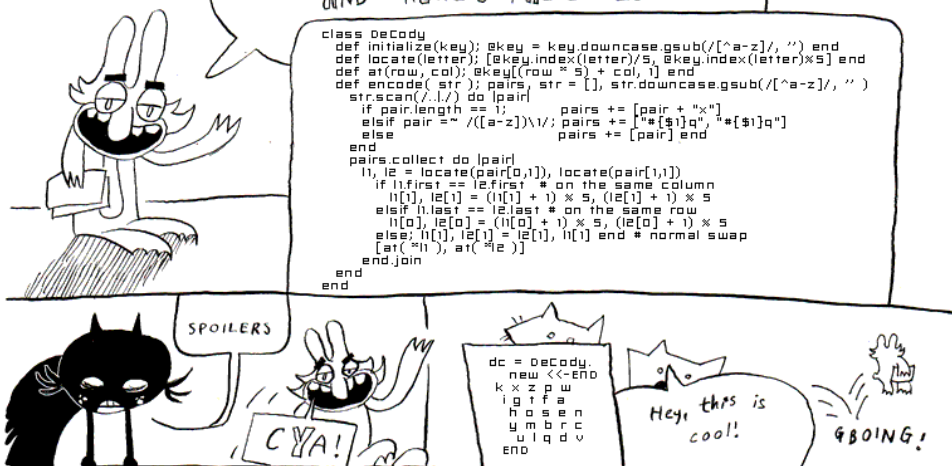 AND
class DeCody
def initialize(key); @key = key.downcase.gsub(/[^a-z]/, '') end
def locate(letter); [@key.index(letter)/5, @key.index(letter)%5] end
def at(row, col); @key[(row * 5) + col, 1] end
def encode( str ); pairs, str = [], str.downcase.gsub(/[^a-z]/, '' )
str.scan(/..|./) do |pair|
if pair.length == 1; pairs += [pair + "x"]
elsif pair =~ /([a-z])\1/; pairs += ["#{$1}q", "#{$1}q"]
else pairs += [pair] end
end
pairs.collect do |pair|
l1, l2 = locate(pair[0,1]), locate(pair[1,1])
if l1.first == l2.first # on the same column
l1[1], l2[1] = (l1[1] + 1) % 5, (l2[1] + 1) % 5
elsif l1.last == l2.last # on the same row
l1[0], l2[0] = (l1[0] + 1) % 5, (l2[0] + 1) % 5
else; l1[1], l2[1] = l2[1], l1[1] end # normal swap
[at( *l1 ), at( *l2 )]
end.join
end
end
SPOILERS
CYA!
dc = DeCody.
new <<-END
k x z p w
i g t f a
h o s e n
y m b r c
u l q d v
END
Hey, this is
cool!
GBOING!